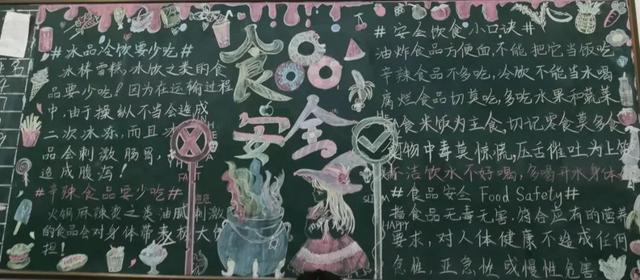 #水品冷饮要少吃#
冰棒雪糕,冰饮之类的食
品要少吃!因为在运输过程
中,由于操纵不当会造成
二次冰冻,而且冰
品会刺激肠胃,
造成腹泻!
#辛辣食品要少吃#
火锅麻辣烫之类油腻刺激
的食品会对身体带来极大
担!
食品
安全
#安全饮食小口诀#
油炸食品方便面,不能把它当饭吃
辛辣食品不多吃,冷饮不能当水喝
腐烂食品切莫吃,多吃水果和蔬菜
食米饭为主食,切记零食莫多食
物中毒莫惊慌,压舌催吐为上
不洁饮水不好喝,多喝开水身体
#食品安全 Food Safety#
指食品无毒无害,符合应有的营养
要求,对人体健康不造成任何
急性、亚急性或慢性危害